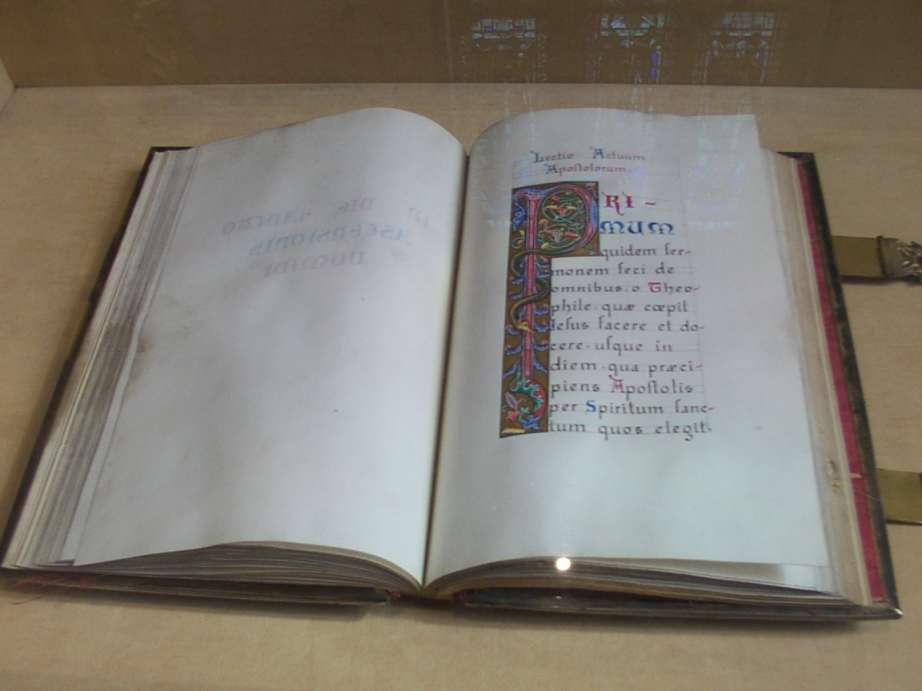 Lectio Actuum
Apoſtolorum.
PRI-
MUM
quidem ſer-
monem feci de
omnibus, o Theo-
phile, quæ cœpit
Jeſus facere et do-
cere, uſque in
diem, qua præci-
piens Apoſtolis
per Spiritum ſanc-
tum quos elegit,